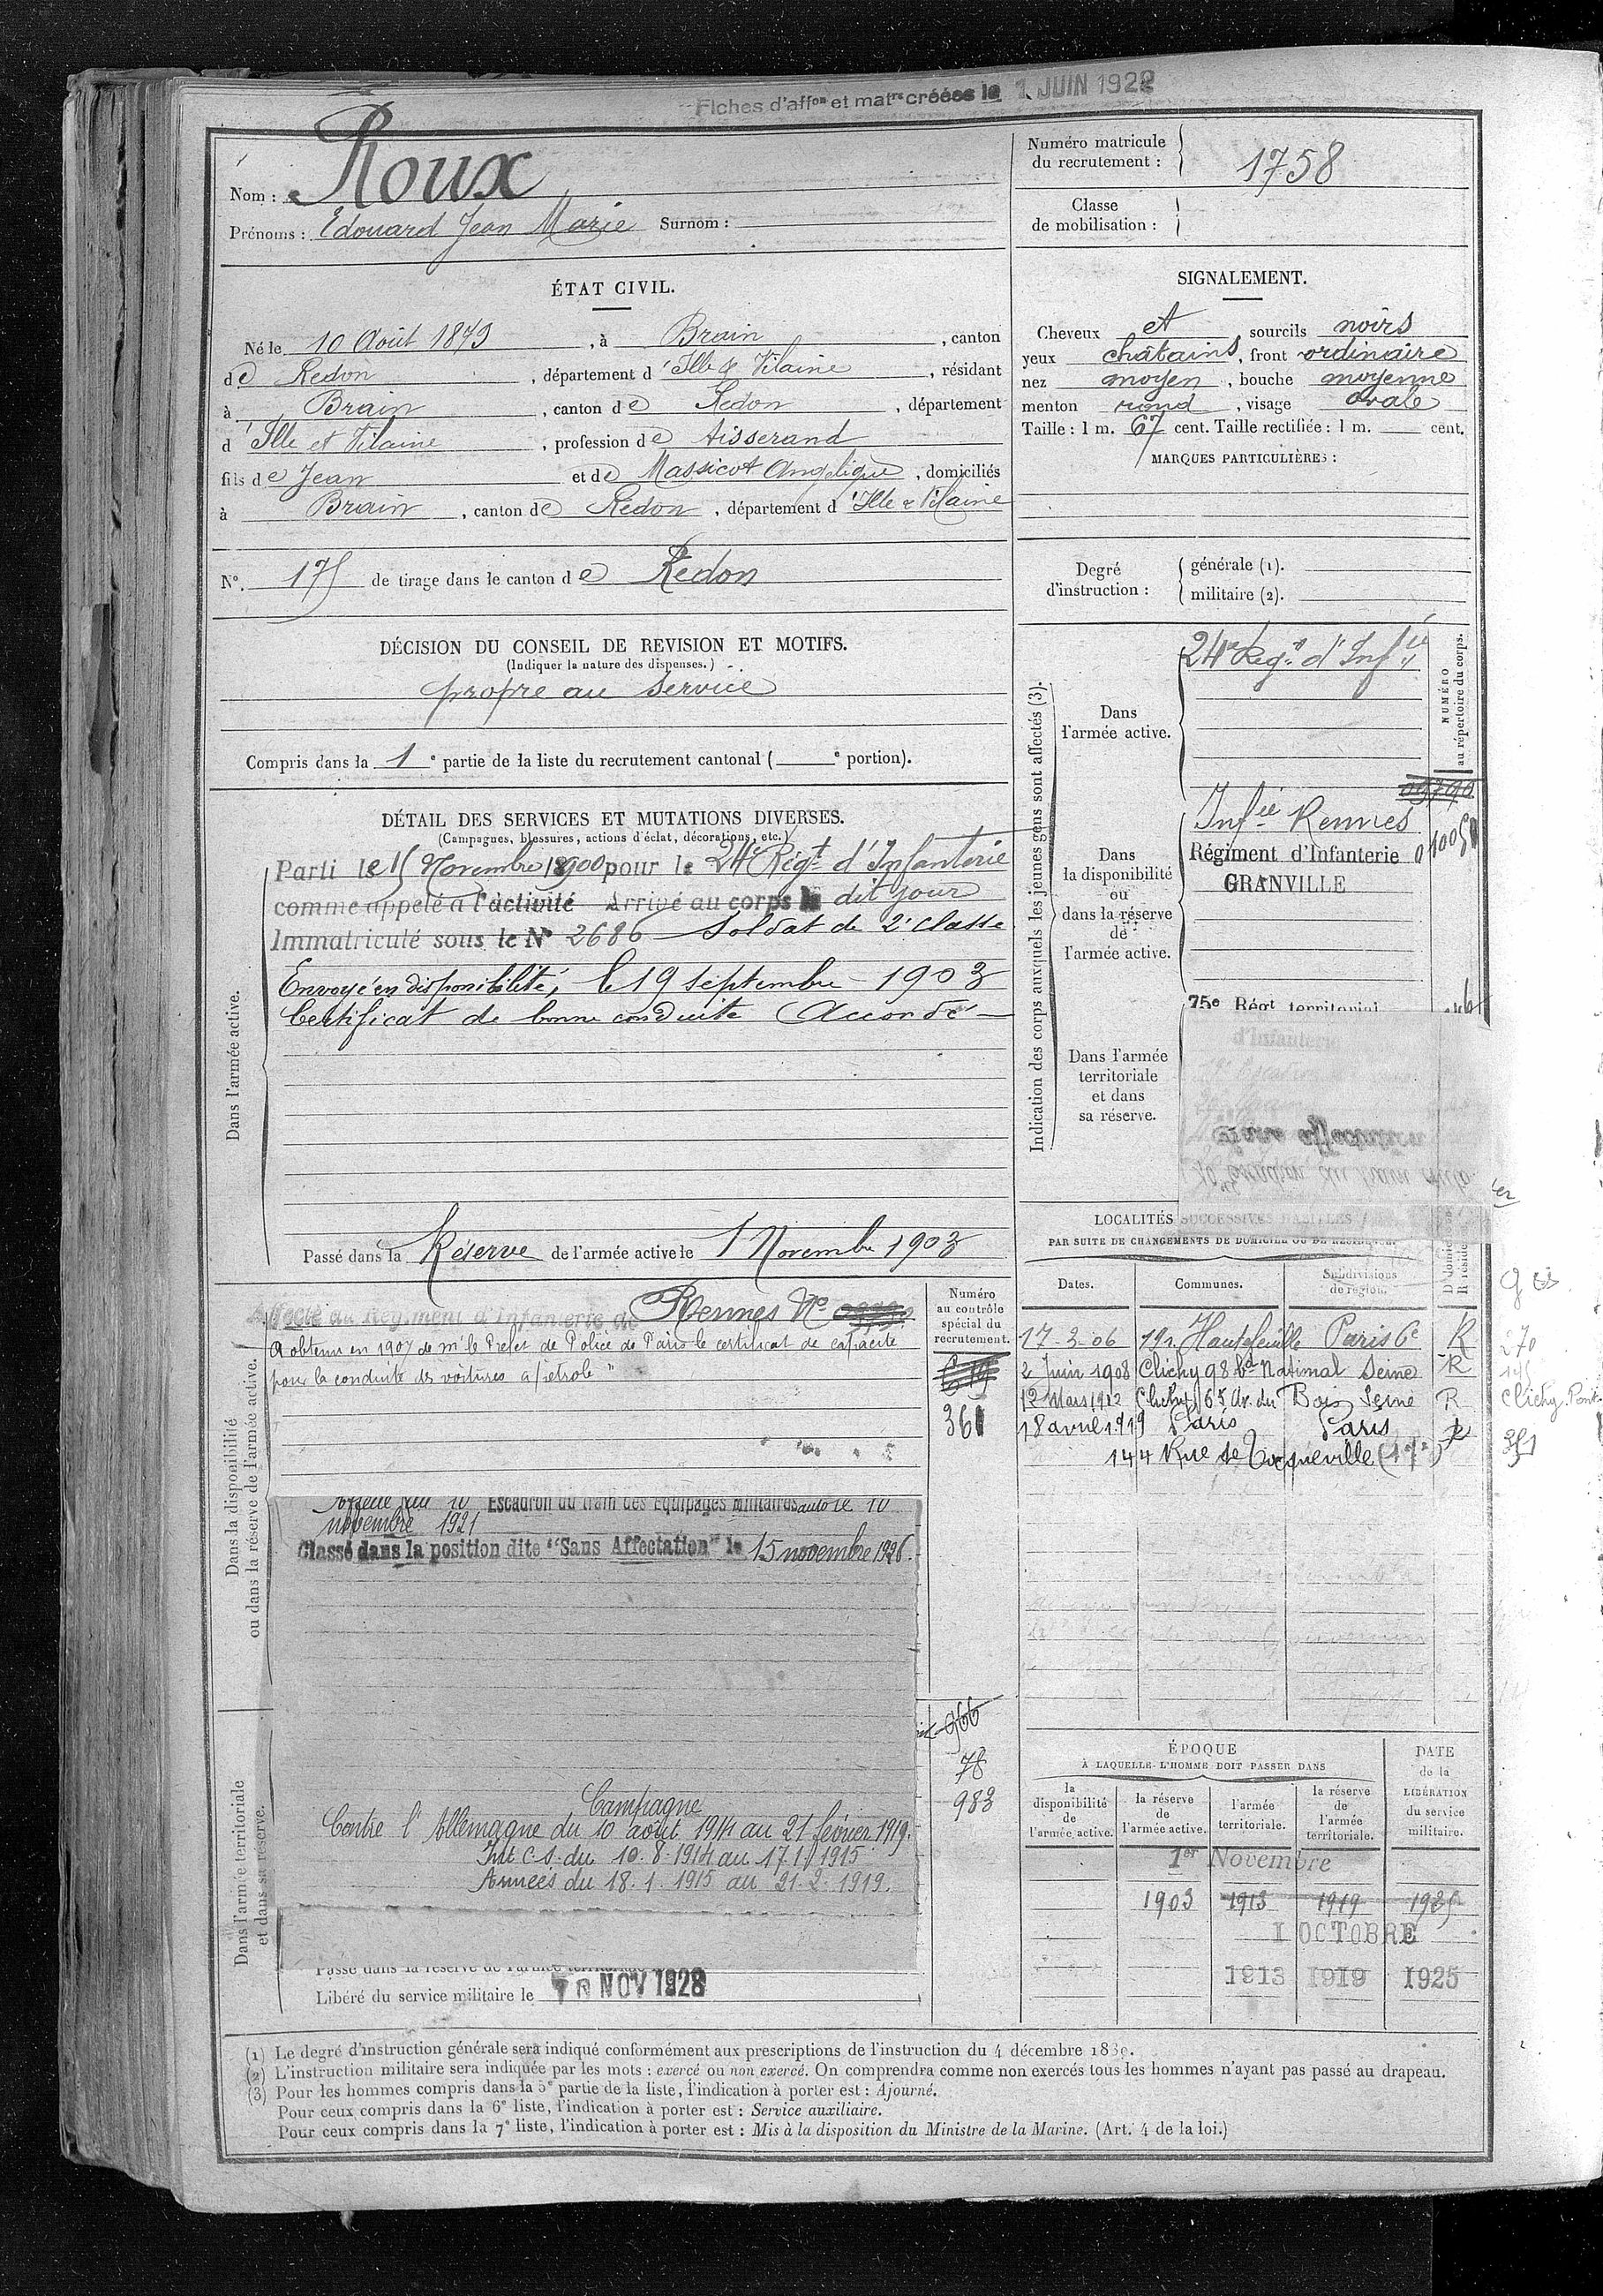 Fiches d'affon et matre créées le 1 JUIN 1922
Nom : Roux
Prénoms : Edouard Jean Marie Surnom :
Numéro matricule
du recrutement : 1758
Classe
de mobilisation :
ÉTAT CIVIL.
Né le 10 Août 1879, à Brain, canton
de Redon, département d'Ille & Vilaine, résidant
à Brain, canton de Redon, département
d'Ille et Vilaine, profession de tisserand
fils de Jean et de Massicot Angélique, domiciliés
à Brain, canton de Redon, département d'Ille & Vilaine
N°. 175 de tirage dans le canton de Redon
SIGNALEMENT.
Cheveux et sourcils noirs
yeux châtains, front ordinaire
nez moyen, bouche moyenne
menton rond, visage ovale
Taille : 1 m. 67 cent. Taille rectifiée : 1 m. cent.
MARQUES PARTICULIÈRES :
Degré
d'instruction :
générale (1).
militaire (2).
DÉCISION DU CONSEIL DE REVISION ET MOTIFS.
(Indiquer la nature des dispenses.)
propre au service
Compris dans la 1e partie de la liste du recrutement cantonal ( e portion).
DÉTAIL DES SERVICES ET MUTATIONS DIVERSES.
(Campagnes, blessures, actions d'éclat, décorations, etc.)
Dans l'armée active.
Parti le 15 Novembre 1900 pour le 24e Régt d'Infanterie
comme appelé à l'activité Arrivé au corps le dit jour
Immatriculé sous le N° 2686 Soldat de 2e classe
Envoyé en disponibilité, le 19 septembre 1903
Certificat de bonne conduite Accordé
Passé dans la Réserve de l'armée active le 1 Novembre 1903
Indication des corps auxquels les jeunes gens sont affectés (3).
NUMÉRO
au répertoire du corps.
Dans
l'armée active.
24e Regt d'Infie
Dans
la disponibilité
ou
dans la réserve
de
l'armée active.
Infie Rennes
Régiment d'Infanterie
GRANVILLE
Dans l'armée
territoriale
et dans
sa réserve.
75e Régt territorial
d'Infanterie
Dans la disponibilité
ou dans la réserve de l'armée active.
Affecté au Régiment d'Infanterie de Rennes No
A obtenu en 1907 de mr le Préfet de Police de Paris le certificat de capacité
pour la conduite des voitures à pétrole"
Numéro
au contrôle
spécial du
recrutement.
619
361
Escadron du train des Equipages militaires auto le 10
novembre 1921
Classé dans la position dite "Sans Affectation" le 15 novembre 1926.
966
78
983
Dans l'armée territoriale
et dans sa réserve.
Campagne
Contre l'Allemagne du 10 août 1914 au 21 février 1919.
Int C.S. du 10.8.1914 au 17.1.1915
Armées du 18.1.1915 au 21.2.1919.
Passé dans la réserve de l'armée territoriale
Libéré du service militaire le 10 NOV 1928
LOCALITÉS SUCCESSIVES HABITÉES
PAR SUITE DE CHANGEMENTS DE DOMICILE OU DE RÉSIDENCE.
Dates. Communes. Subdivisions
de région.
17-3-06 19 r. Hautefeuille Paris 6e R
2 Juin 1908 Clichy 98 Bd National Seine R
12 Mars 1912 Clichy, 65 Av. du Bois Seine R
18 avril 1919 Paris Paris
144 Rue de Tocqueville (17e)
270
Clichy. Pont
351
ÉPOQUE
À LAQUELLE L'HOMME DOIT PASSER DANS
la
disponibilité
de
l'armée active.
la réserve
de
l'armée active.
l'armée
territoriale.
la réserve
de
l'armée
territoriale.
DATE
de la
LIBÉRATION
du service
militaire.
1er Novembre
1903 1913 1919 1925
1 OCTOBRE
1913 1919 1925
(1) Le degré d'instruction générale sera indiqué conformément aux prescriptions de l'instruction du 4 décembre 1889.
(2) L'instruction militaire sera indiquée par les mots : exercé ou non exercé. On comprendra comme non exercés tous les hommes n'ayant pas passé au drapeau.
(3) Pour les hommes compris dans la 5e partie de la liste, l'indication à porter est : Ajourné.
Pour ceux compris dans la 6e liste, l'indication à porter est : Service auxiliaire.
Pour ceux compris dans la 7e liste, l'indication à porter est : Mis à la disposition du Ministre de la Marine. (Art. 4 de la loi.)